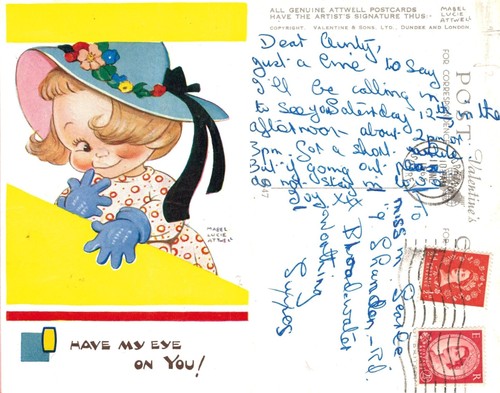 MABEL
LUCIE
ATTWELL
HAVE MY EYE
ON YOU!
ALL GENUINE ATTWELL POSTCARDS
HAVE THE ARTIST'S SIGNATURE THUS:-
MABEL
LUCIE
ATTWELL
COPYRIGHT. VALENTINE & SONS. LTD., DUNDEE AND LONDON
POST
FOR CORRESPONDENCE
Valentine's
Dear Aunty,
Just a line to say
I'll be calling
to see you Saturday 12th
afternoon about 2pm or
3pm. Got a short
But if going out
do not stay in
Joy XX
To
Miss M Searle
9 Shandon Rd
Broadwater
Worthing
Sussex
E R